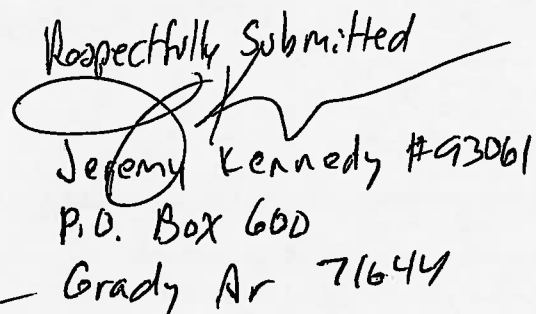 Respectfully Submitted
Jeremy Kennedy #93061
P.O. Box 600
Grady Ar 71644